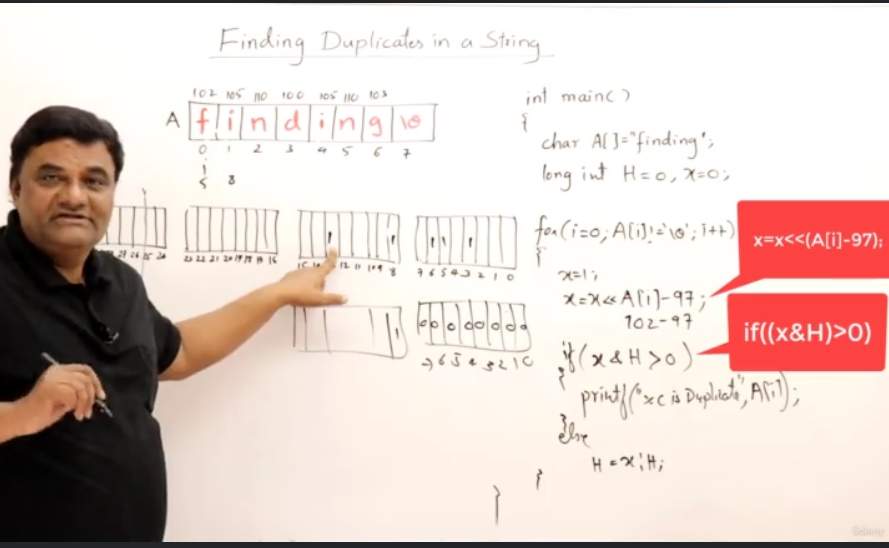 Finding Duplicates in a String
102 105 110 100 105 110 103
A f i n d i n g \0
0 1 2 3 4 5 6 7
i
5 8
26 25 24
23 22 21 20 19 18 17 16
15 12 11 10 9 8
7 6 5 4 3 2 1 0
0 0 0 0 0 0 0 0
7 6 5 4 3 2 1 0
int main()
{
char A[]="finding";
long int H=0, x=0;
for(i=0; A[i]!='\0'; i++)
{
x=1;
x=x<<A[i]-97;
102-97
x=x<<(A[i]-97);
if(x&H>0)
if((x&H)>0)
{
printf("%c is Duplicate", A[i]);
}
else
H=x|H;
}
}
Udemy